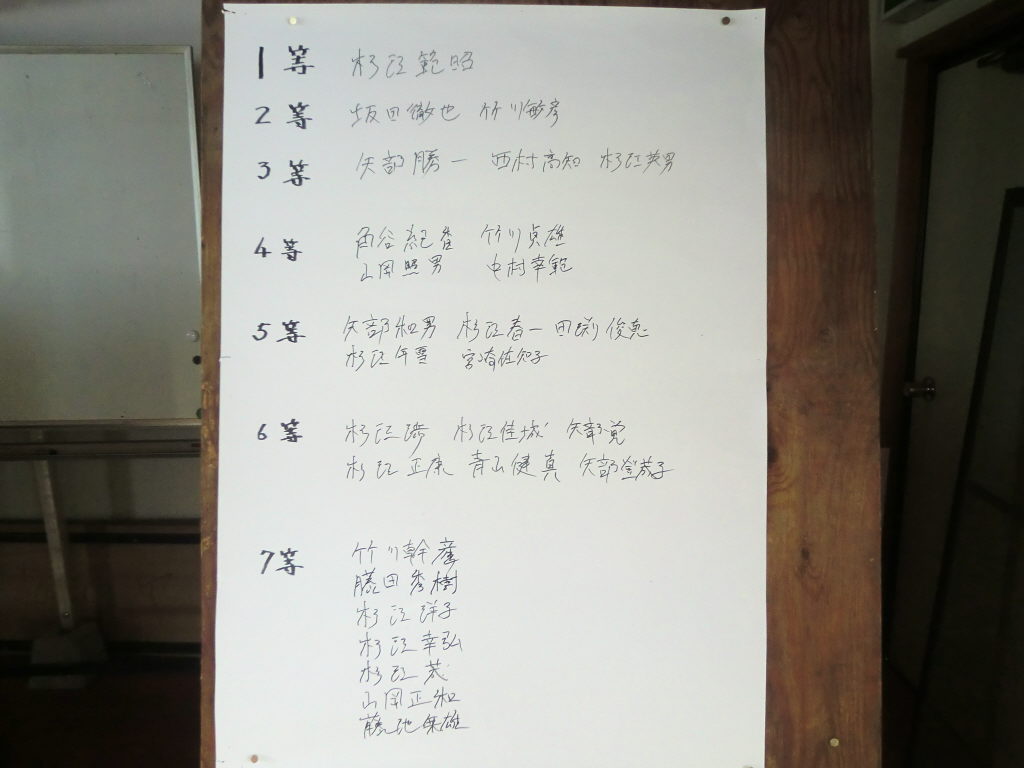 1等 杉江範照
2等 坂田徹也 竹川敏彦
3等 矢部勝一 西村高知 杉江英男
4等 角谷紀香 竹川貞雄
山岡照男 中村幸範
5等 矢部和男 杉江春一 田渕俊恵
杉江年雪 宮崎佐知子
6等 杉江渉 杉江佳城 矢部覚
杉江正康 青山健真 矢部登茂子
7等 竹川幹彦
藤田秀樹
杉江洋子
杉江幸弘
杉江茂
山岡正和